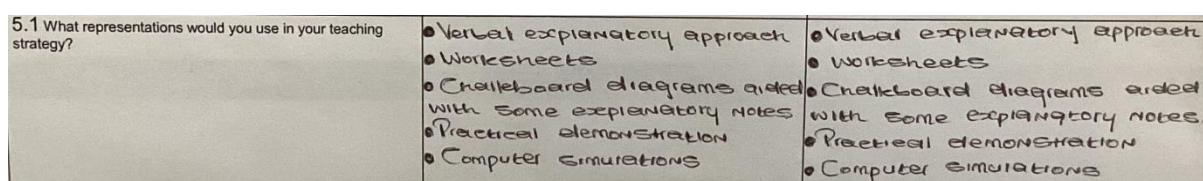 5.1 What representations would you use in your teaching
strategy?
• Verbal explanatory approach
• Worksheets
• Chalkboard diagrams aided
with some explanatory Notes
• Practical demonstration
• Computer simulations
• Verbal explanatory approach
• Worksheets
• Chalkboard diagrams aided
with some explanatory Notes.
• Practical demonstration
• Computer simulations